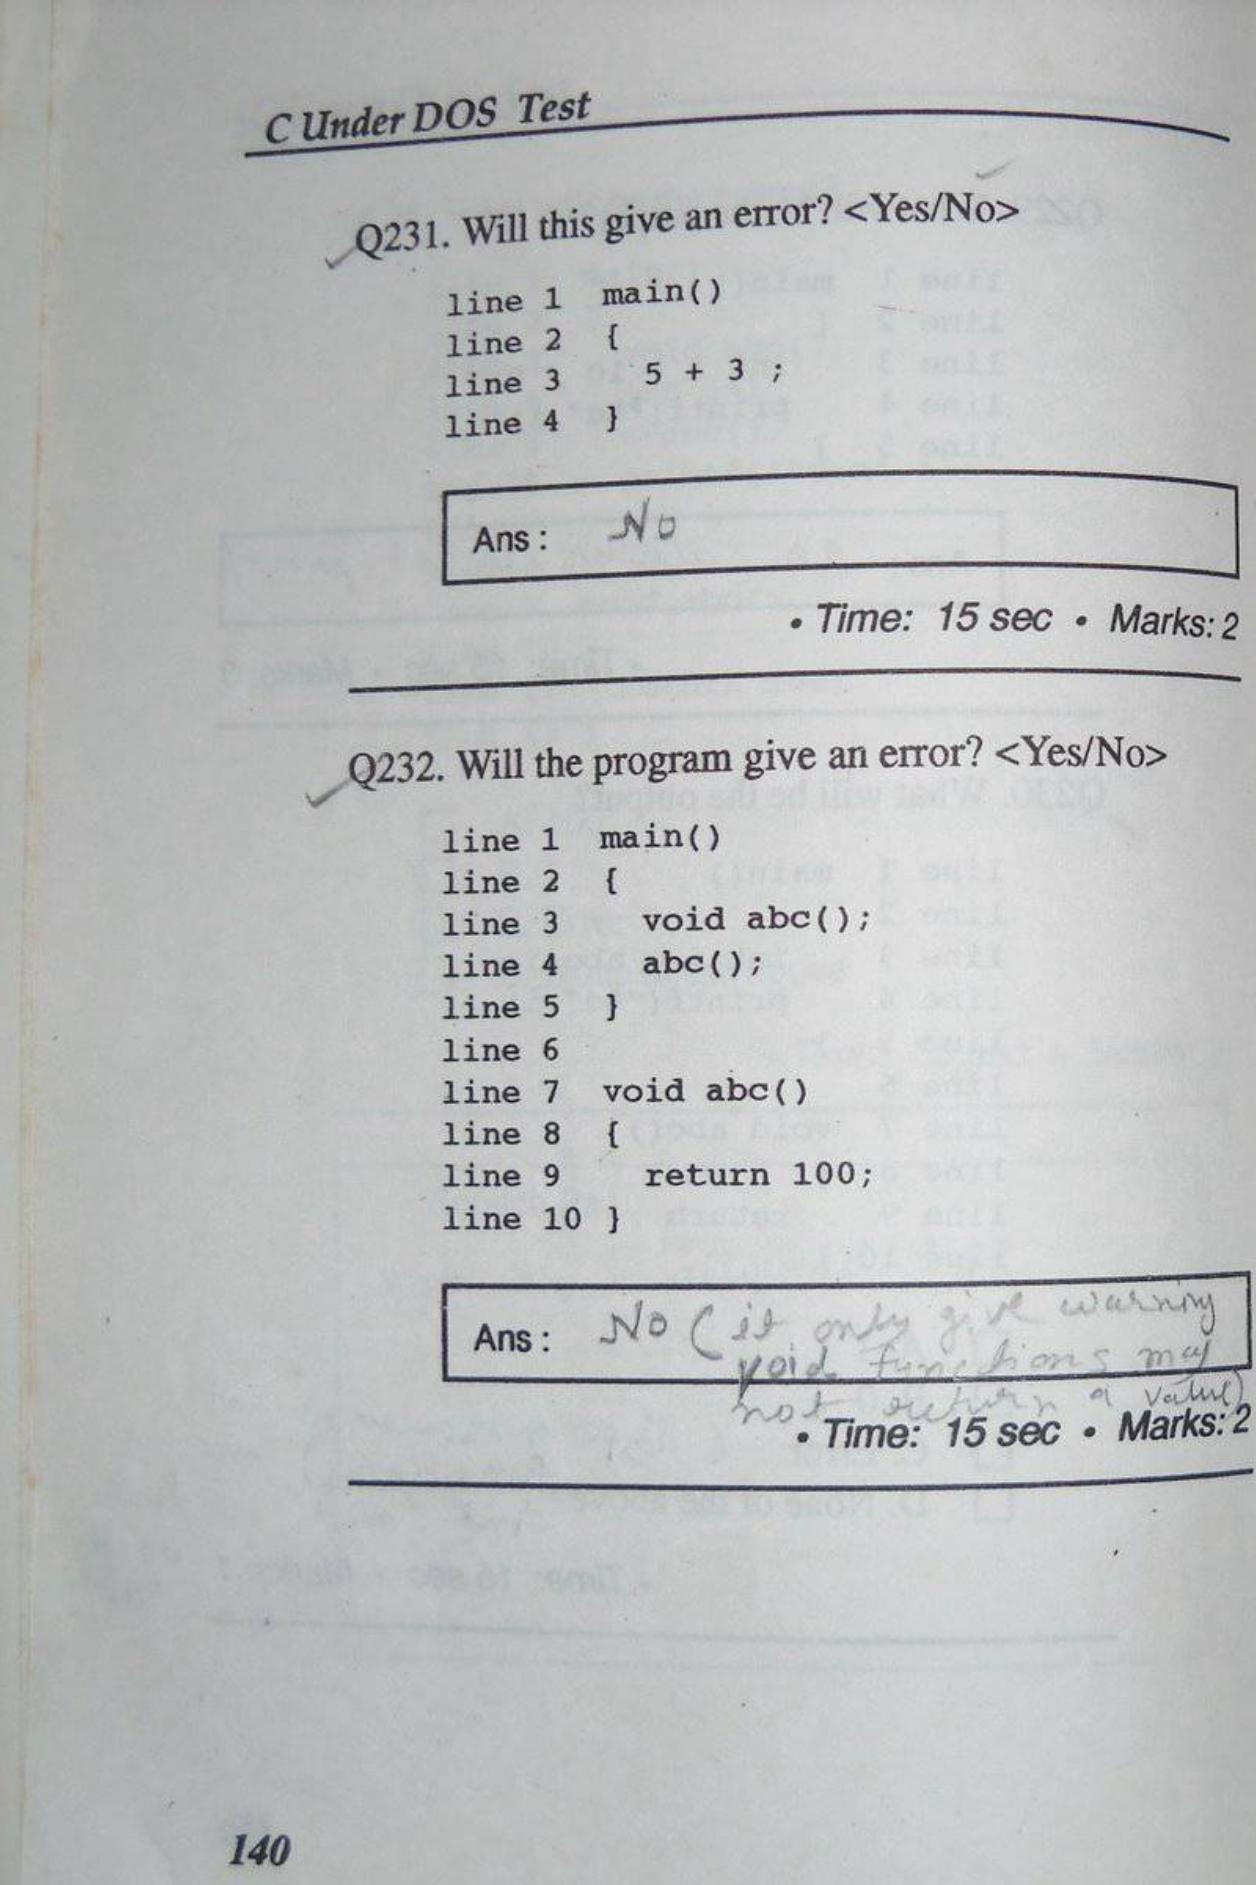 C Under DOS Test
Q231. Will this give an error? <Yes/No>
line 1 main()
line 2 {
line 3 5 + 3 ;
line 4 }
Ans : No
• Time: 15 sec • Marks: 2
Q232. Will the program give an error? <Yes/No>
line 1 main()
line 2 {
line 3 void abc();
line 4 abc();
line 5 }
line 6
line 7 void abc()
line 8 {
line 9 return 100;
line 10 }
Ans : No (it only give warning
void functions may
not return a value)
• Time: 15 sec • Marks: 2
140